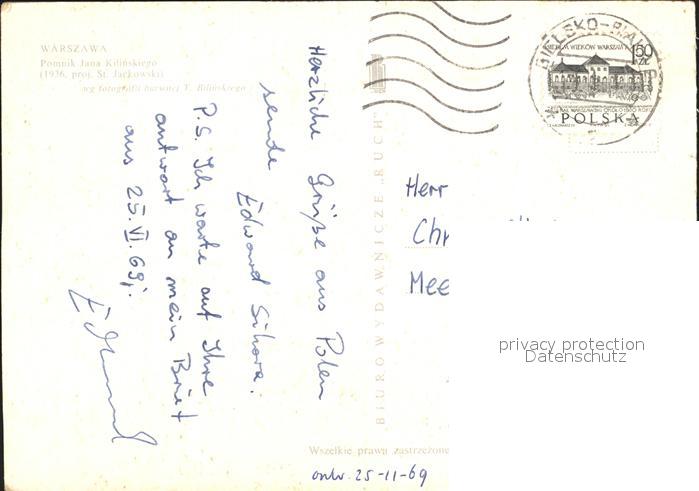 WARSZAWA
Pomnik Jana Kilińskiego
(1936, proj. St. Jackowski)
wg fotografii barwnej T. Bilińskiego
Herzliche Grüße aus Polen
sende
Edward Sikora.
P.S. Ich warte auf Ihre
antwort an mein Brief
aus 25.VI.69j.
BIURO WYDAWNICZE „RUCH"
BIELSKO-BIAŁA
SIEDEM WIEKÓW WARSZAWY
1,50
ZŁ
POLSKA
Herr
Chr
Mee
privacy protection
Datenschutz
Wszelkie prawa zastrzeżone
antw. 25-11-69